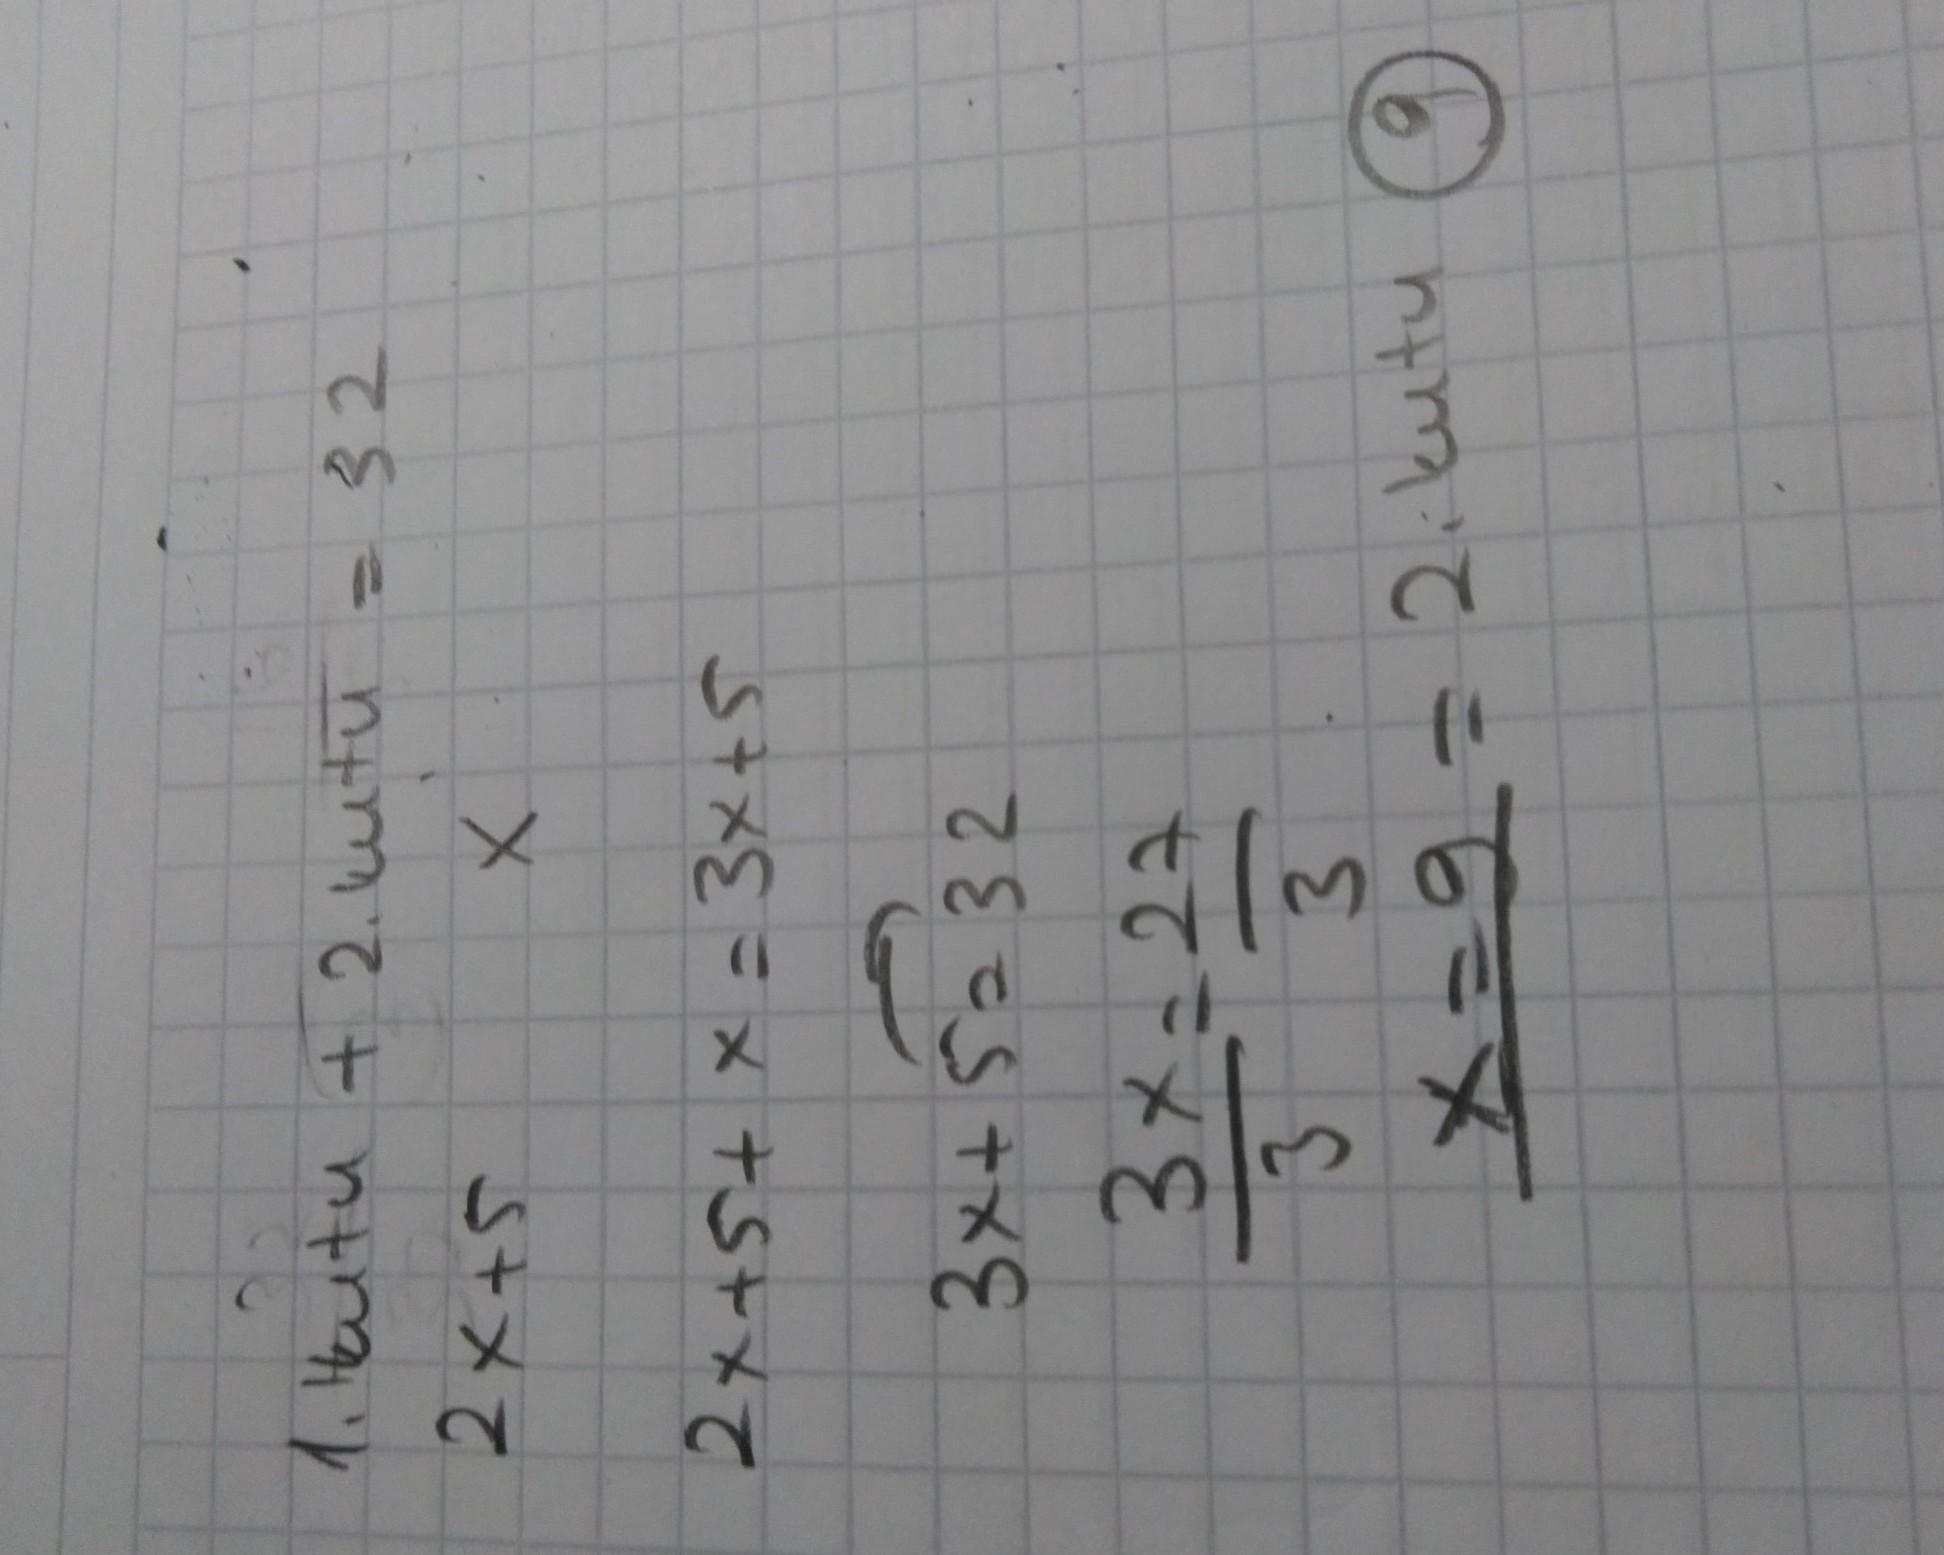 1. kutu + 2. kutu = 32
2x+5 x
2x+5+x=3x+5
3x+5=32
3x=27
3 3
x=9 = 2. kutu 9